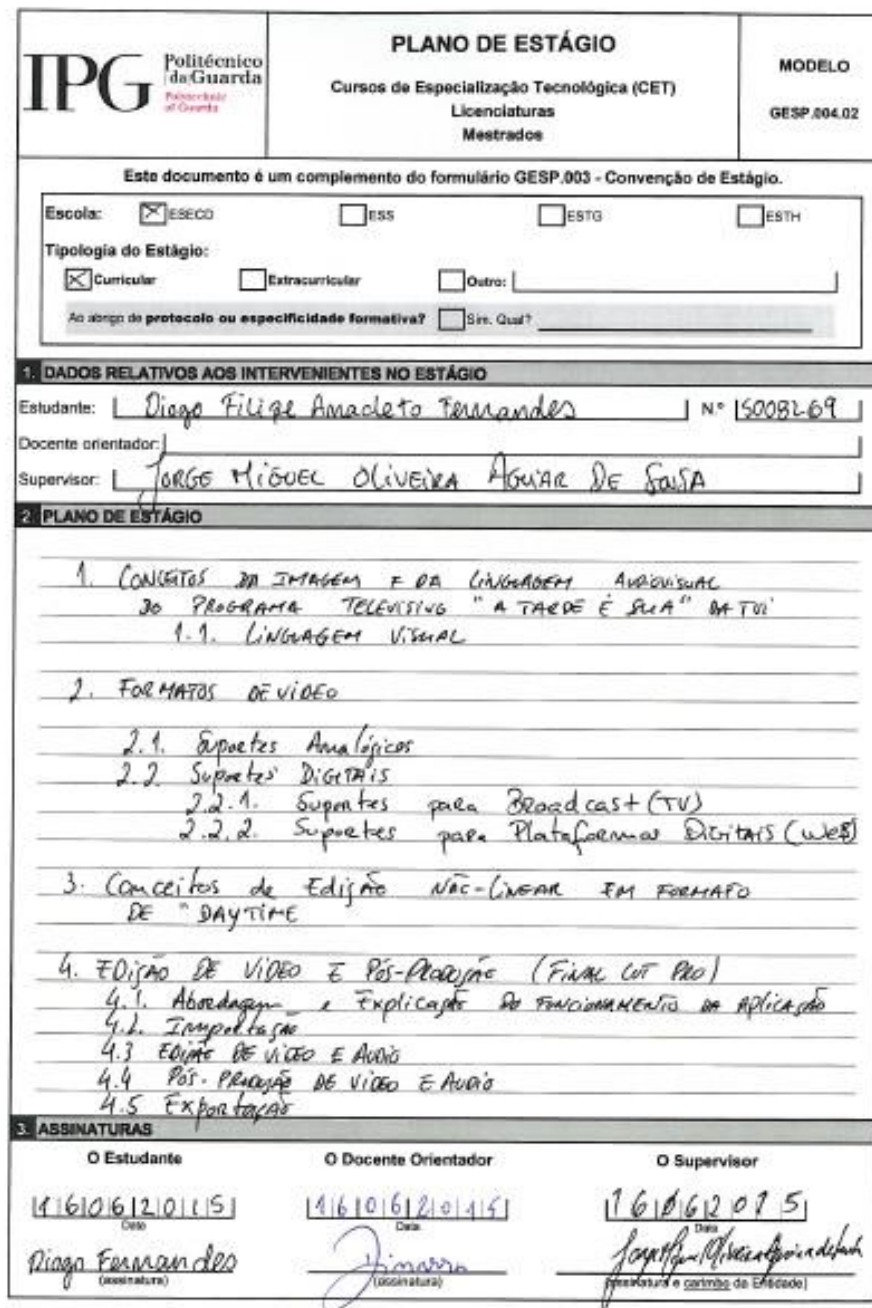 IPG Politécnico
da Guarda
Polytechnic
of Guarda
PLANO DE ESTÁGIO
Cursos de Especialização Tecnológica (CET)
Licenciaturas
Mestrados
MODELO
GESP.004.02
Este documento é um complemento do formulário GESP.003 - Convenção de Estágio.
Escola: ESECD ESS ESTG ESTH
Tipologia do Estágio:
Curricular Extracurricular Outro:
Ao abrigo de protocolo ou especificidade formativa? Sim. Qual?
1. DADOS RELATIVOS AOS INTERVENIENTES NO ESTÁGIO
Estudante: Diogo Filipe Anacleto Fernandes N.º 5008269
Docente orientador:
Supervisor: JORGE MIGUEL OLIVEIRA AGUIAR DE SOUSA
2. PLANO DE ESTÁGIO
1. CONCEITOS DA IMAGEM E DA LINGUAGEM AUDIOVISUAL
DO PROGRAMA TELEVISIVO "A TARDE É SUA" DA TVI
1.1. LINGUAGEM VISUAL
2. FORMATOS DE VIDEO
2.1. Suportes Analógicos
2.2. Suportes DIGITAIS
2.2.1. Suportes para Broadcast (TV)
2.2.2. Suportes para Plataformas DIGITAIS (WEB)
3. Conceitos de Edição NÃO-LINEAR EM FORMATO
DE "DAYTIME
4. EDIÇÃO DE VIDEO E PÓS-PRODUÇÃO (FINAL CUT PRO)
4.1. Abordagem e Explicação DO FUNCIONAMENTO DA APLICAÇÃO
4.2. Importação
4.3 EDIÇÃO DE VIDEO E AUDIO
4.4 PÓS-PRODUÇÃO DE VIDEO E AUDIO
4.5 Exportação
3. ASSINATURAS
O Estudante O Docente Orientador O Supervisor
16062015 16062015 16062015
Data Data Data
Diogo Fernandes
(assinatura) (assinatura) (assinatura e carimbo da Entidade)